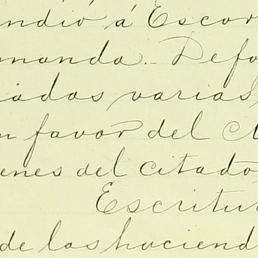 endió á Escor
manda.. Defo
iadas varias,
n favor del C
enes del citado,
Escritu
de las haciend